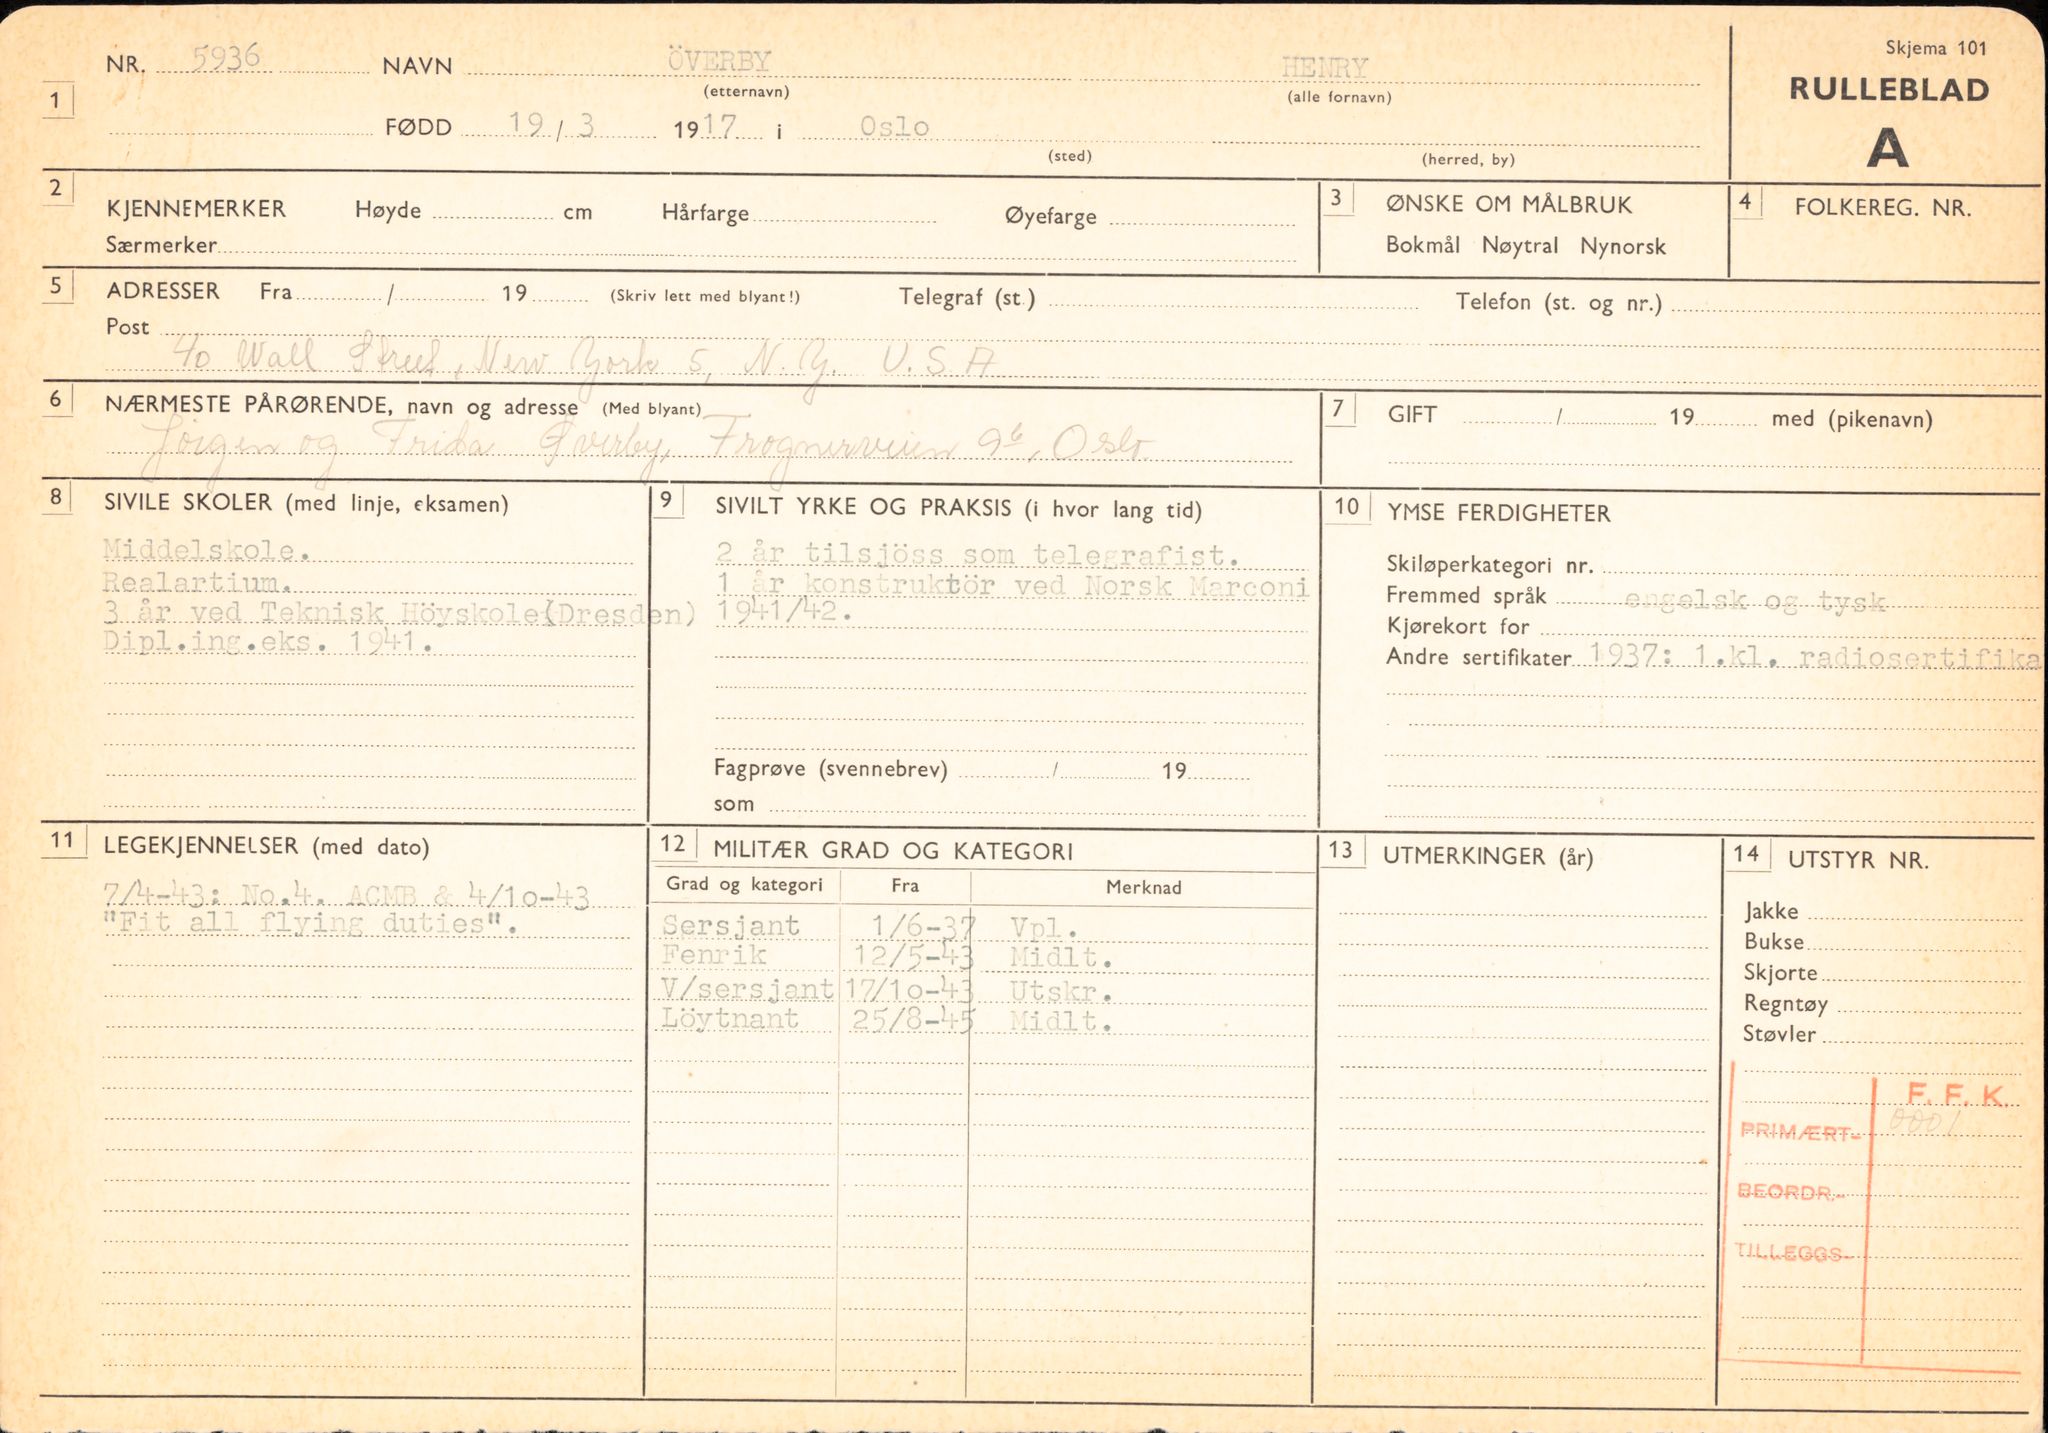 Skjema 101
RULLEBLAD
A
1 NR. 5936 NAVN ÖVERBY HENRY
(etternavn) (alle fornavn)
FØDD 19/3 1917 i Oslo
(sted) (herred, by)
2 KJENNEMERKER Høyde cm Hårfarge Øyefarge
Særmerker
3 ØNSKE OM MÅLBRUK
Bokmål Nøytral Nynorsk
4 FOLKEREG. NR.
5 ADRESSER Fra / 19 (Skriv lett med blyant!) Telegraf (st.) Telefon (st. og nr.)
Post
40 Wall Street, New York 5, N.Y. U.S.A
6 NÆRMESTE PÅRØRENDE, navn og adresse (Med blyant)
Jörgen og Frida Øverby, Frognerveien 9b, Oslo
7 GIFT / 19 med (pikenavn)
8 SIVILE SKOLER (med linje, eksamen)
Middelskole.
Realartium.
3 år ved Teknisk Höyskole(Dresden)
Dipl.ing.eks. 1941.
9 SIVILT YRKE OG PRAKSIS (i hvor lang tid)
2 år tilsjöss som telegrafist.
1 år konstruktör ved Norsk Marconi
1941/42.
Fagprøve (svennebrev) / 19
som
10 YMSE FERDIGHETER
Skiløperkategori nr.
Fremmed språk engelsk og tysk
Kjørekort for
Andre sertifikater 1937: 1.kl. radiosertifika
11 LEGEKJENNELSER (med dato)
7/4-43: No.4. ACMB & 4/10-43
"Fit all flying duties".
12 MILITÆR GRAD OG KATEGORI
Grad og kategori Fra Merknad
Sersjant 1/6-37 Vpl.
Fenrik 12/5-43 Midlt.
V/sersjant 17/10-43 Utskr.
Löytnant 25/8-45 Midlt.
13 UTMERKINGER (år)
14 UTSTYR NR.
Jakke
Bukse
Skjorte
Regntøy
Støvler
F. F. K.
PRIMÆRT- 0001
BEORDR.-
TILLEGGS-